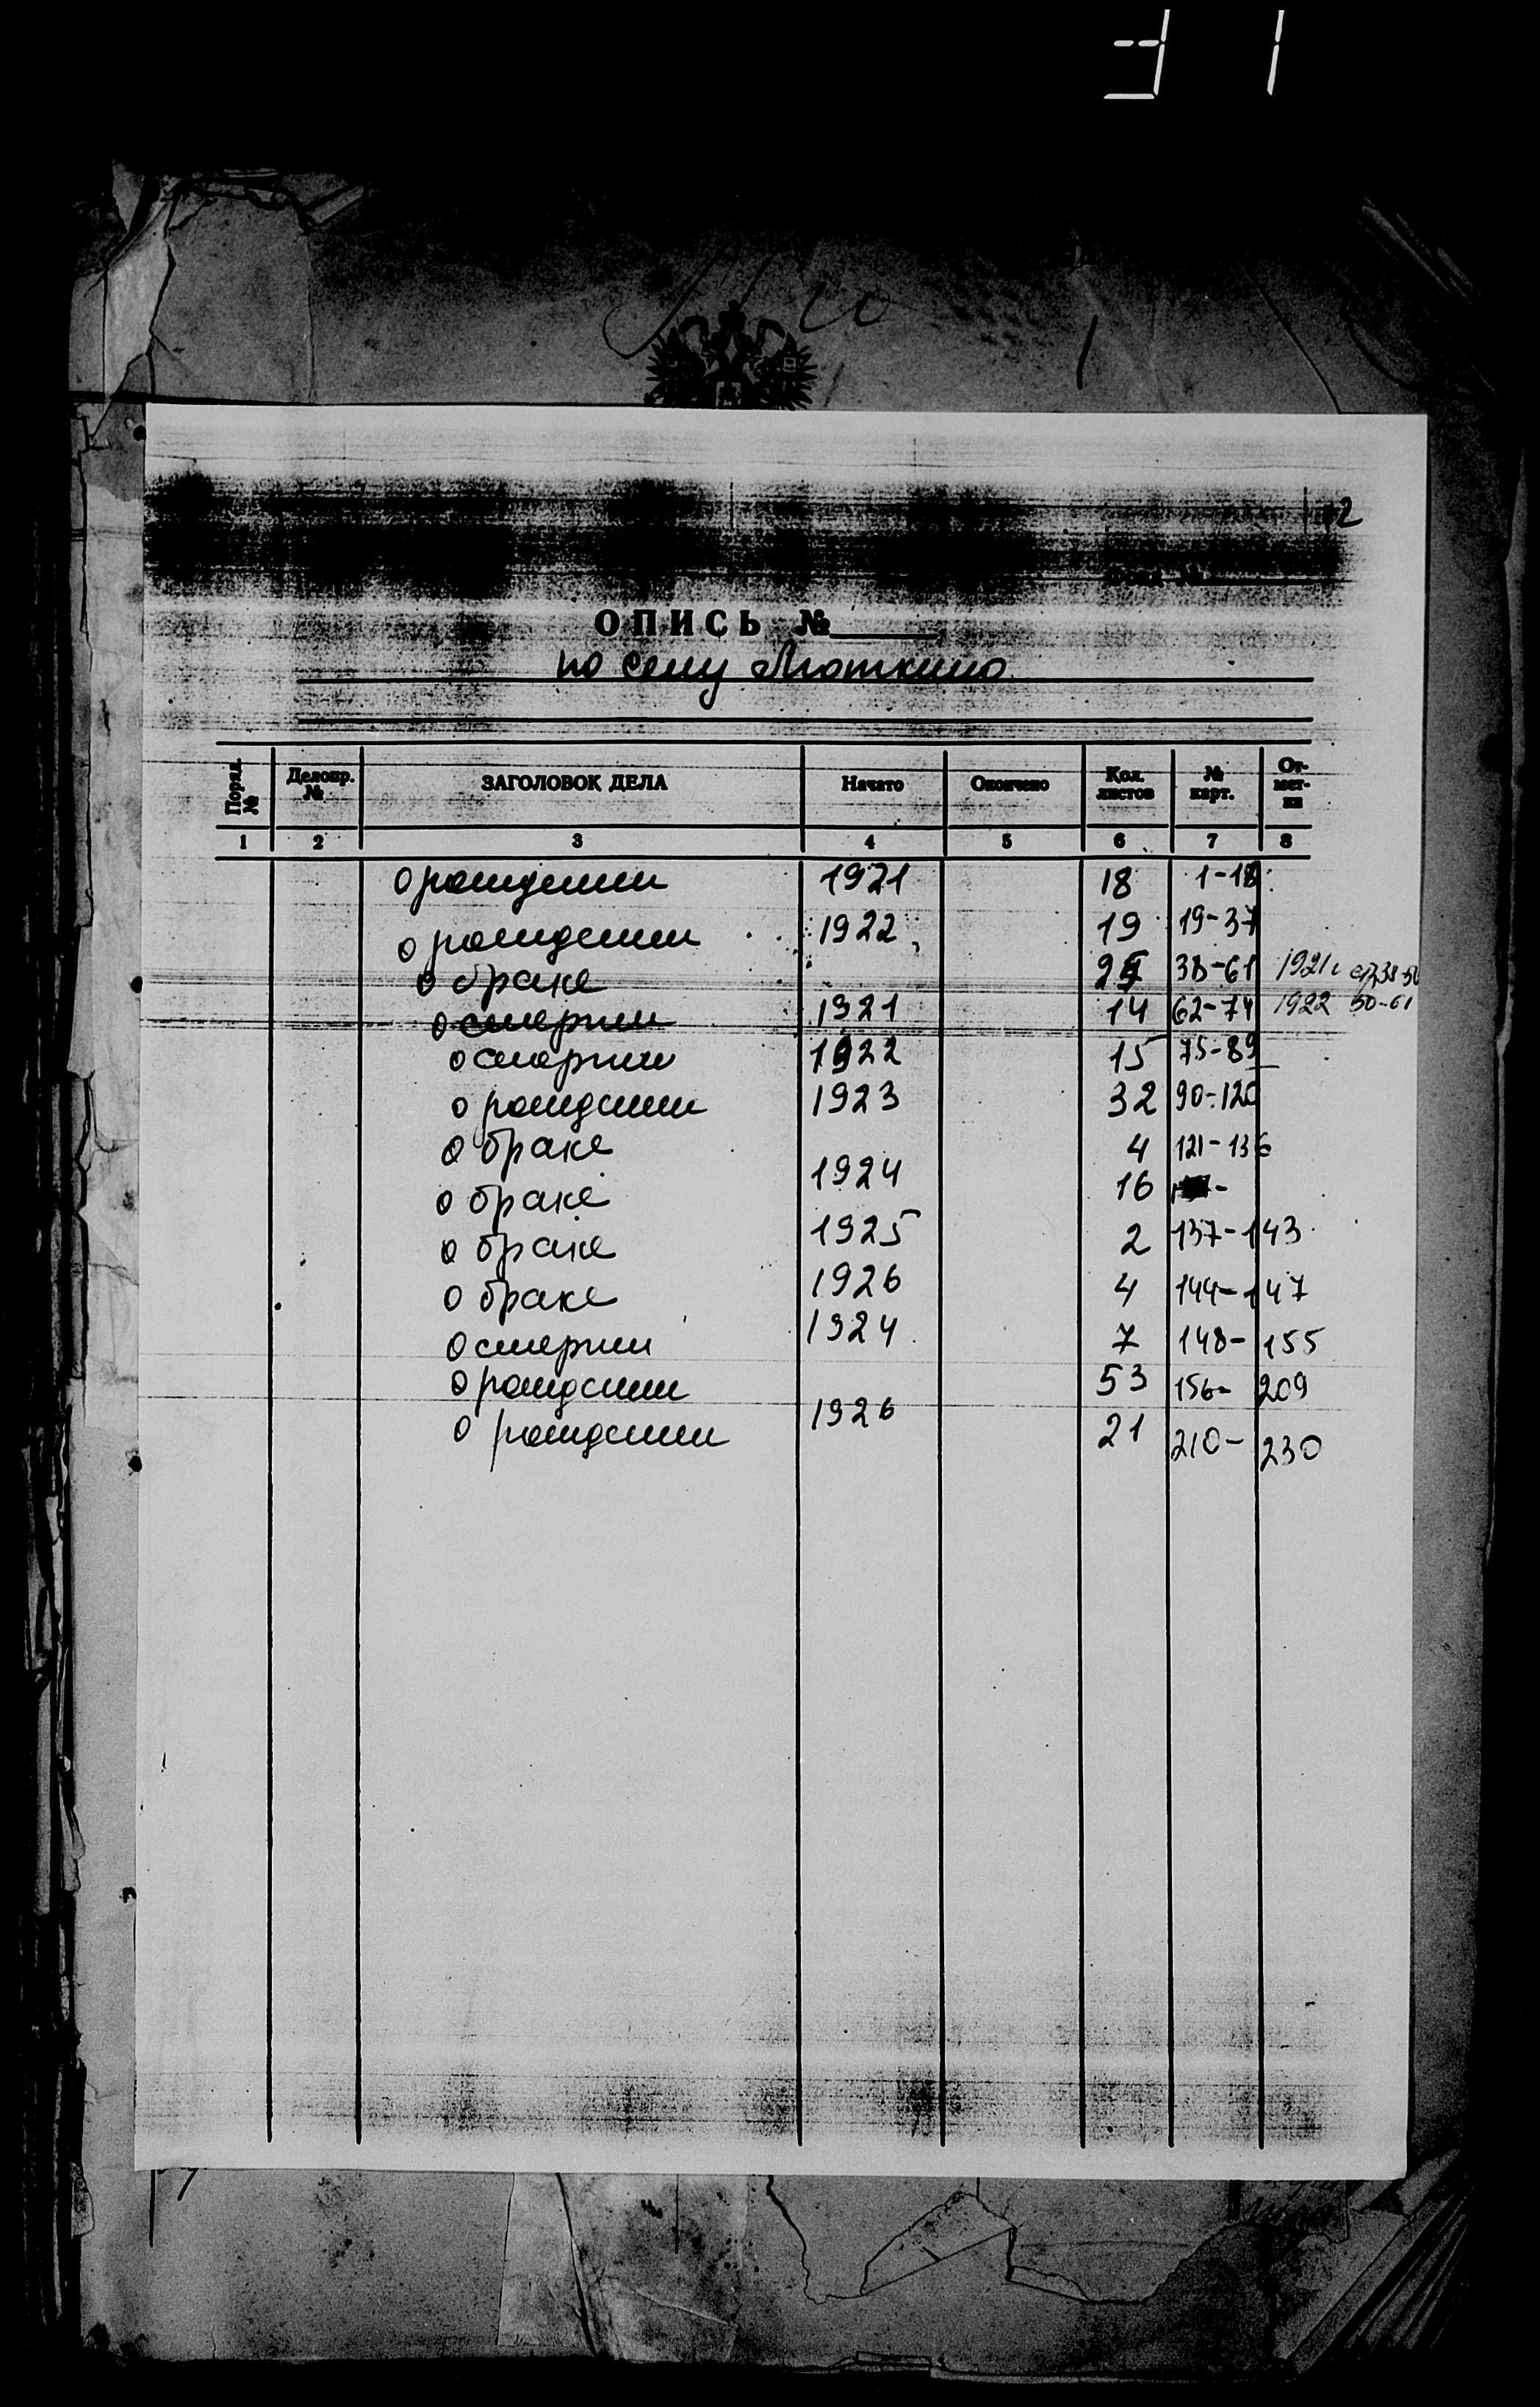 2
ОПИСЬ №
по селу Мюткино
Поряд. № Делопр. № ЗАГОЛОВОК ДЕЛА Начато Окончено Кол. листов № карт. От-мет-ки
1 2 3 4 5 6 7 8
о рождении 1921 18 1-18
о рождении 1922 19 19-37
о браке 38-61 1921г 38-50
о смерти 1921 14 62-74 1922 50-61
о смерти 1922 15 75-89
о рождении 1923 32 90-120
о браке 4 121-136
о браке 1924 16
о браке 1925 2 137-143
о браке 1926 4 144-147
о смерти 1924 7 148-155
о рождении 53 156-209
о рождении 1926 21 210-230